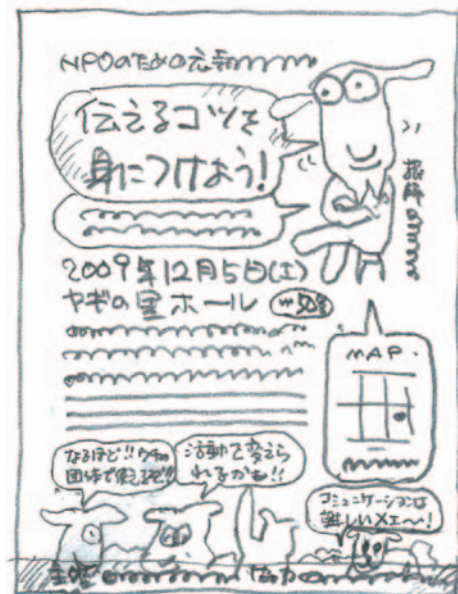 NPOのための広報
伝えるコツを
身につけよう!
講師
2009年12月5日(土)
ヤギの里ホール
50名
MAP.
なるほど!! ウチの
団体で使えるぞ!!
活動て変えら
れるかも!!
コミュニケーションは
難しいメェ〜!
主催
協力